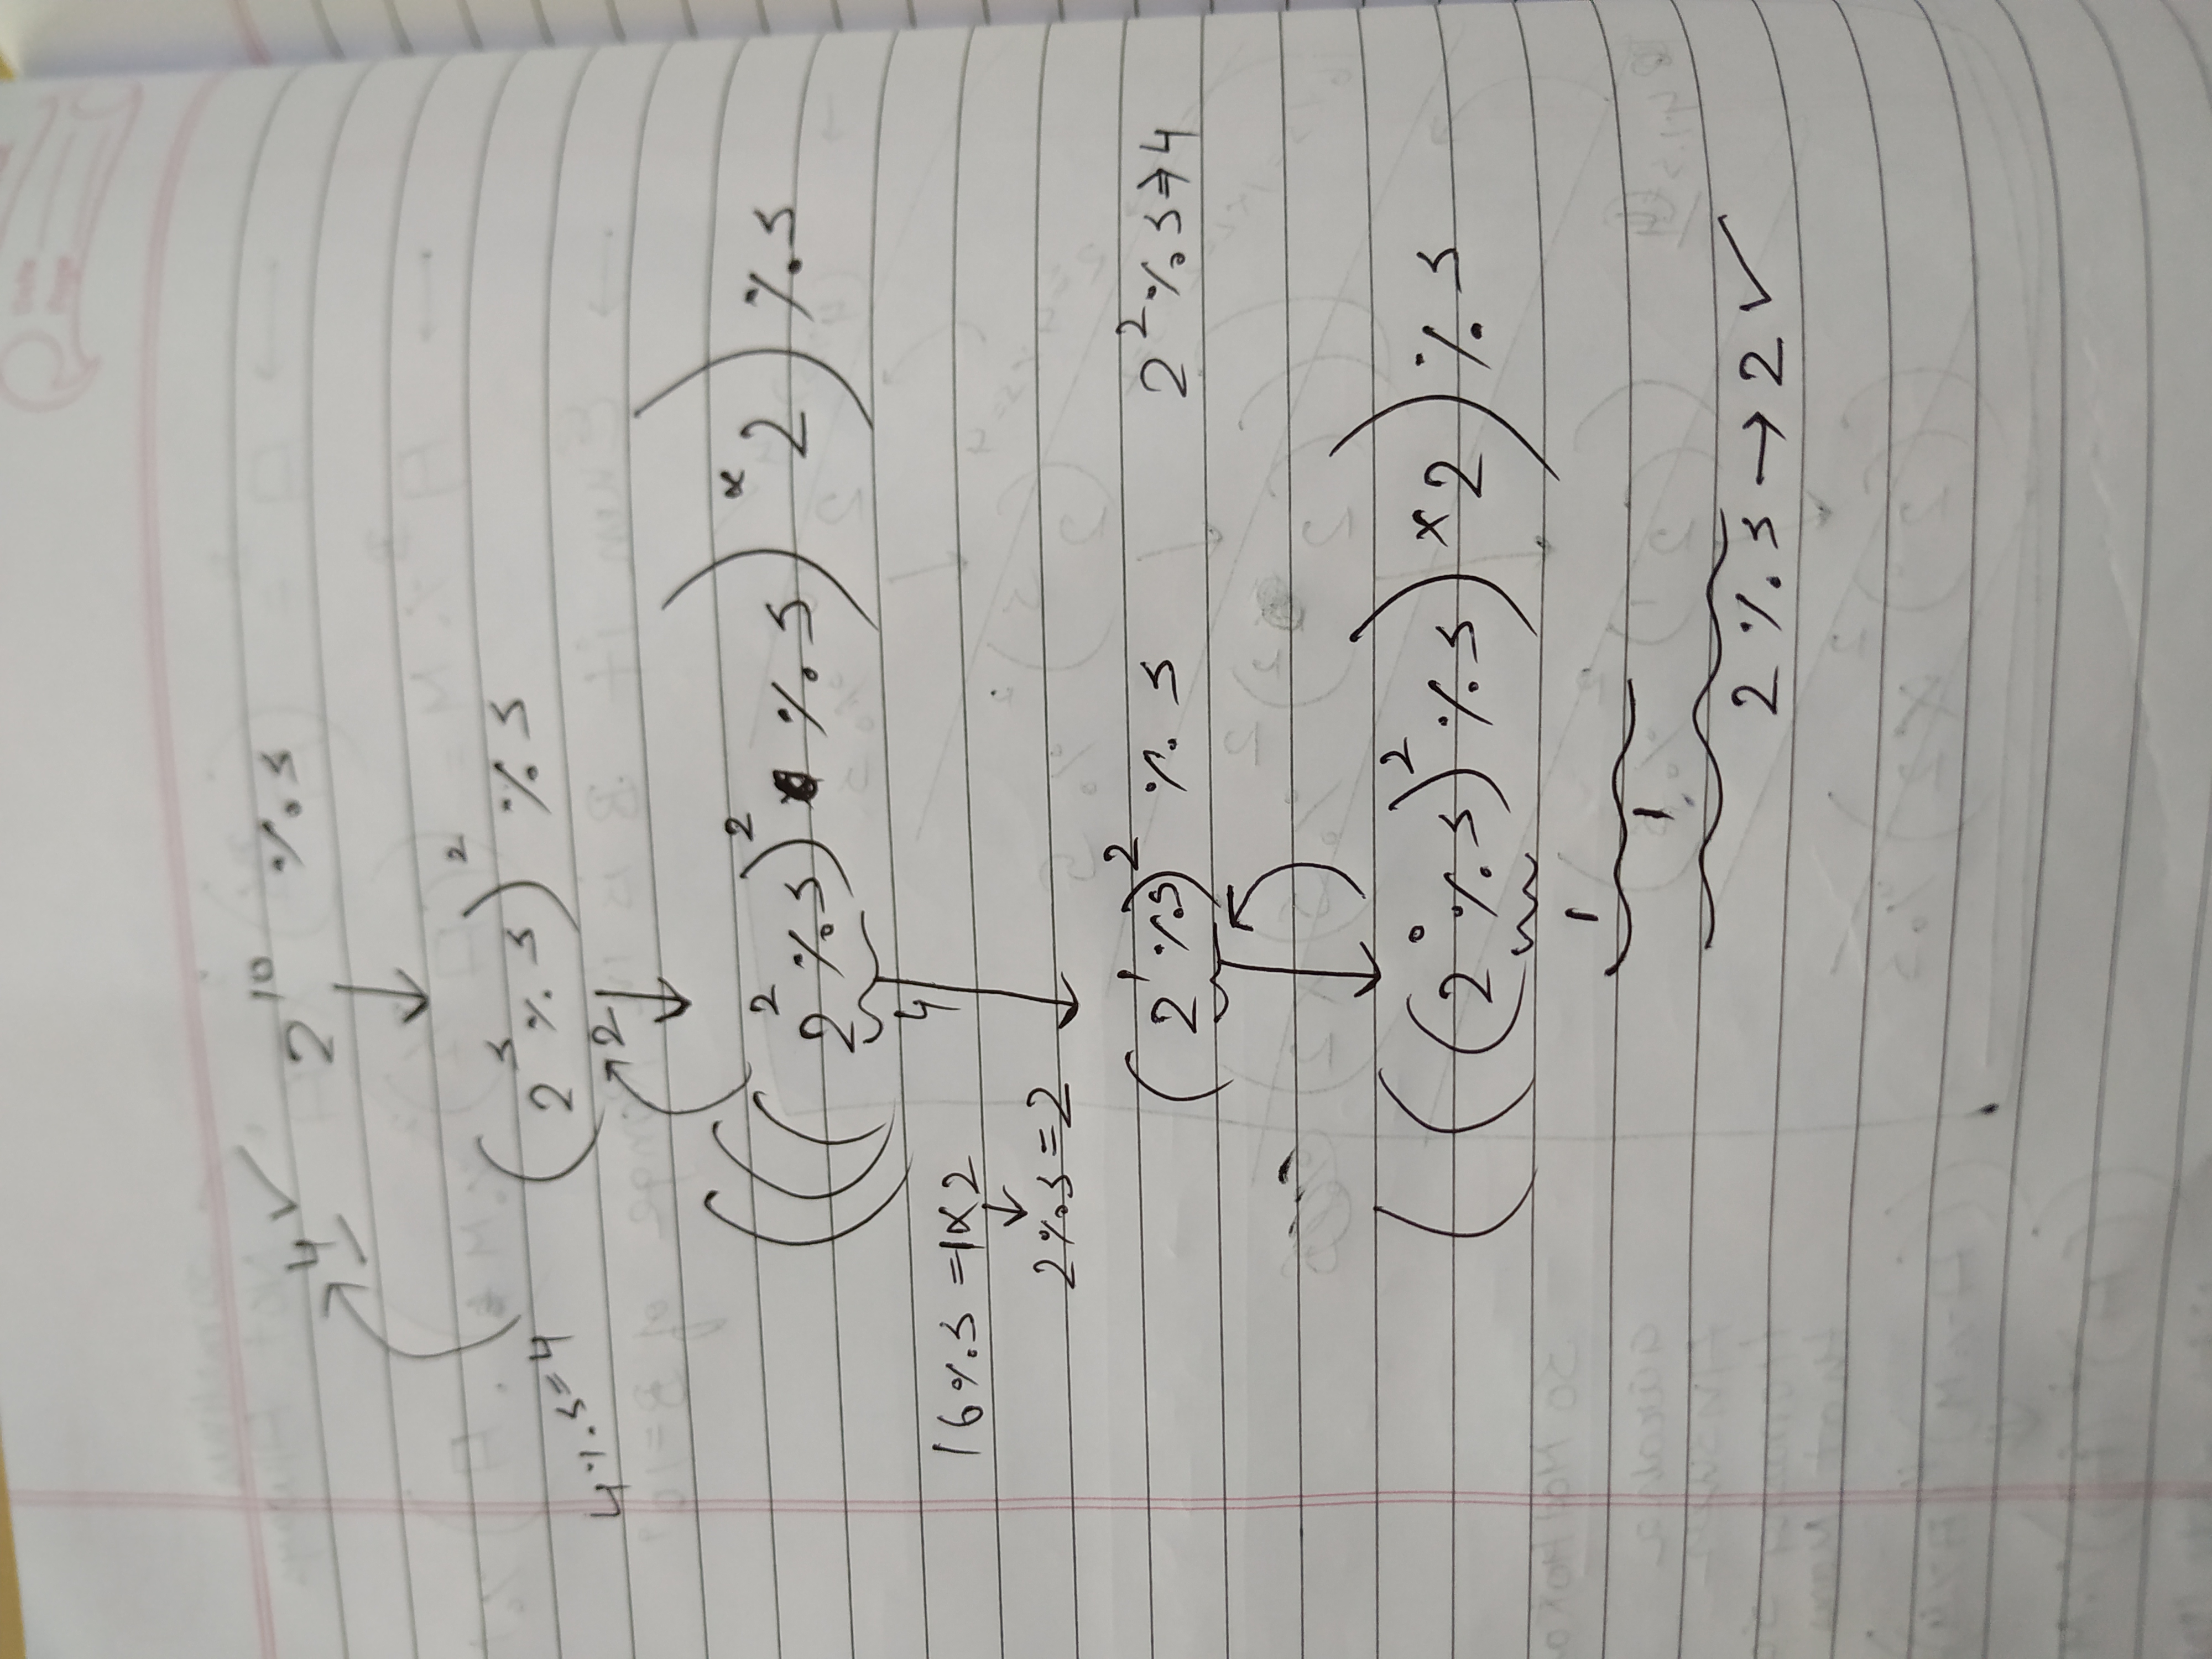 4 ✓ 2^10 % 5
(2^5 % 5)^2 % 5
4 % 5 = 4
2
(((2^2 % 5)^2 % 5) × 2) % 5
4
16 % 5 = 1 × 2
2 % 5 = 2
(2^1 % 5)^2 % 5 2^2 % 5 ⇒ 4
(((2^0 % 5)^2 % 5) × 2) % 5
1
1
2 % 5 → 2 ✓